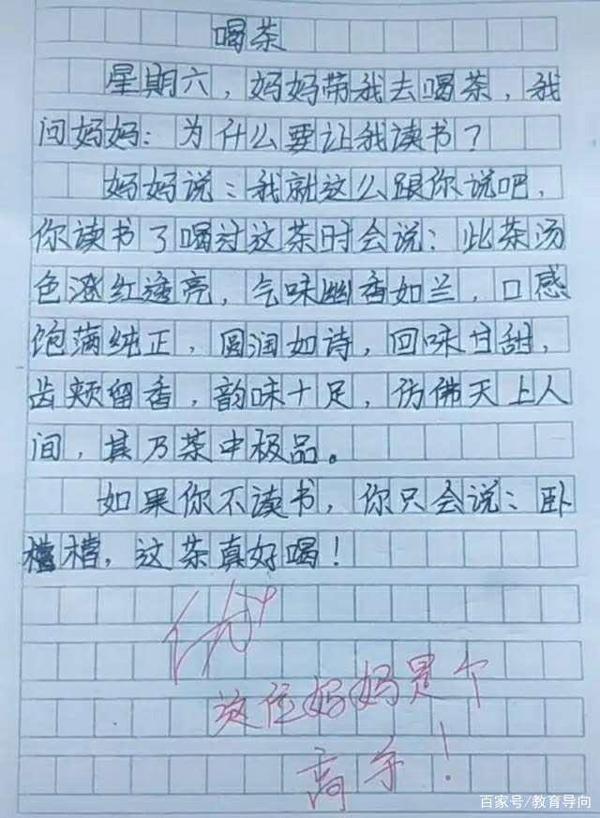 喝茶
星期六，妈妈带我去喝茶，我
问妈妈：为什么要让我读书？
妈妈说：我就这么跟你说吧，
你读书了喝过这茶时会说：此茶汤
色澄红透亮，气味幽香如兰，口感
饱满纯正，圆润如诗，回味甘甜，
齿颊留香，韵味十足，仿佛天上人
间，其乃茶中极品。
如果你不读书，你只会说：卧
槽，这茶真好喝！
优+
这位妈妈是个
高手！
百家号/教育导向